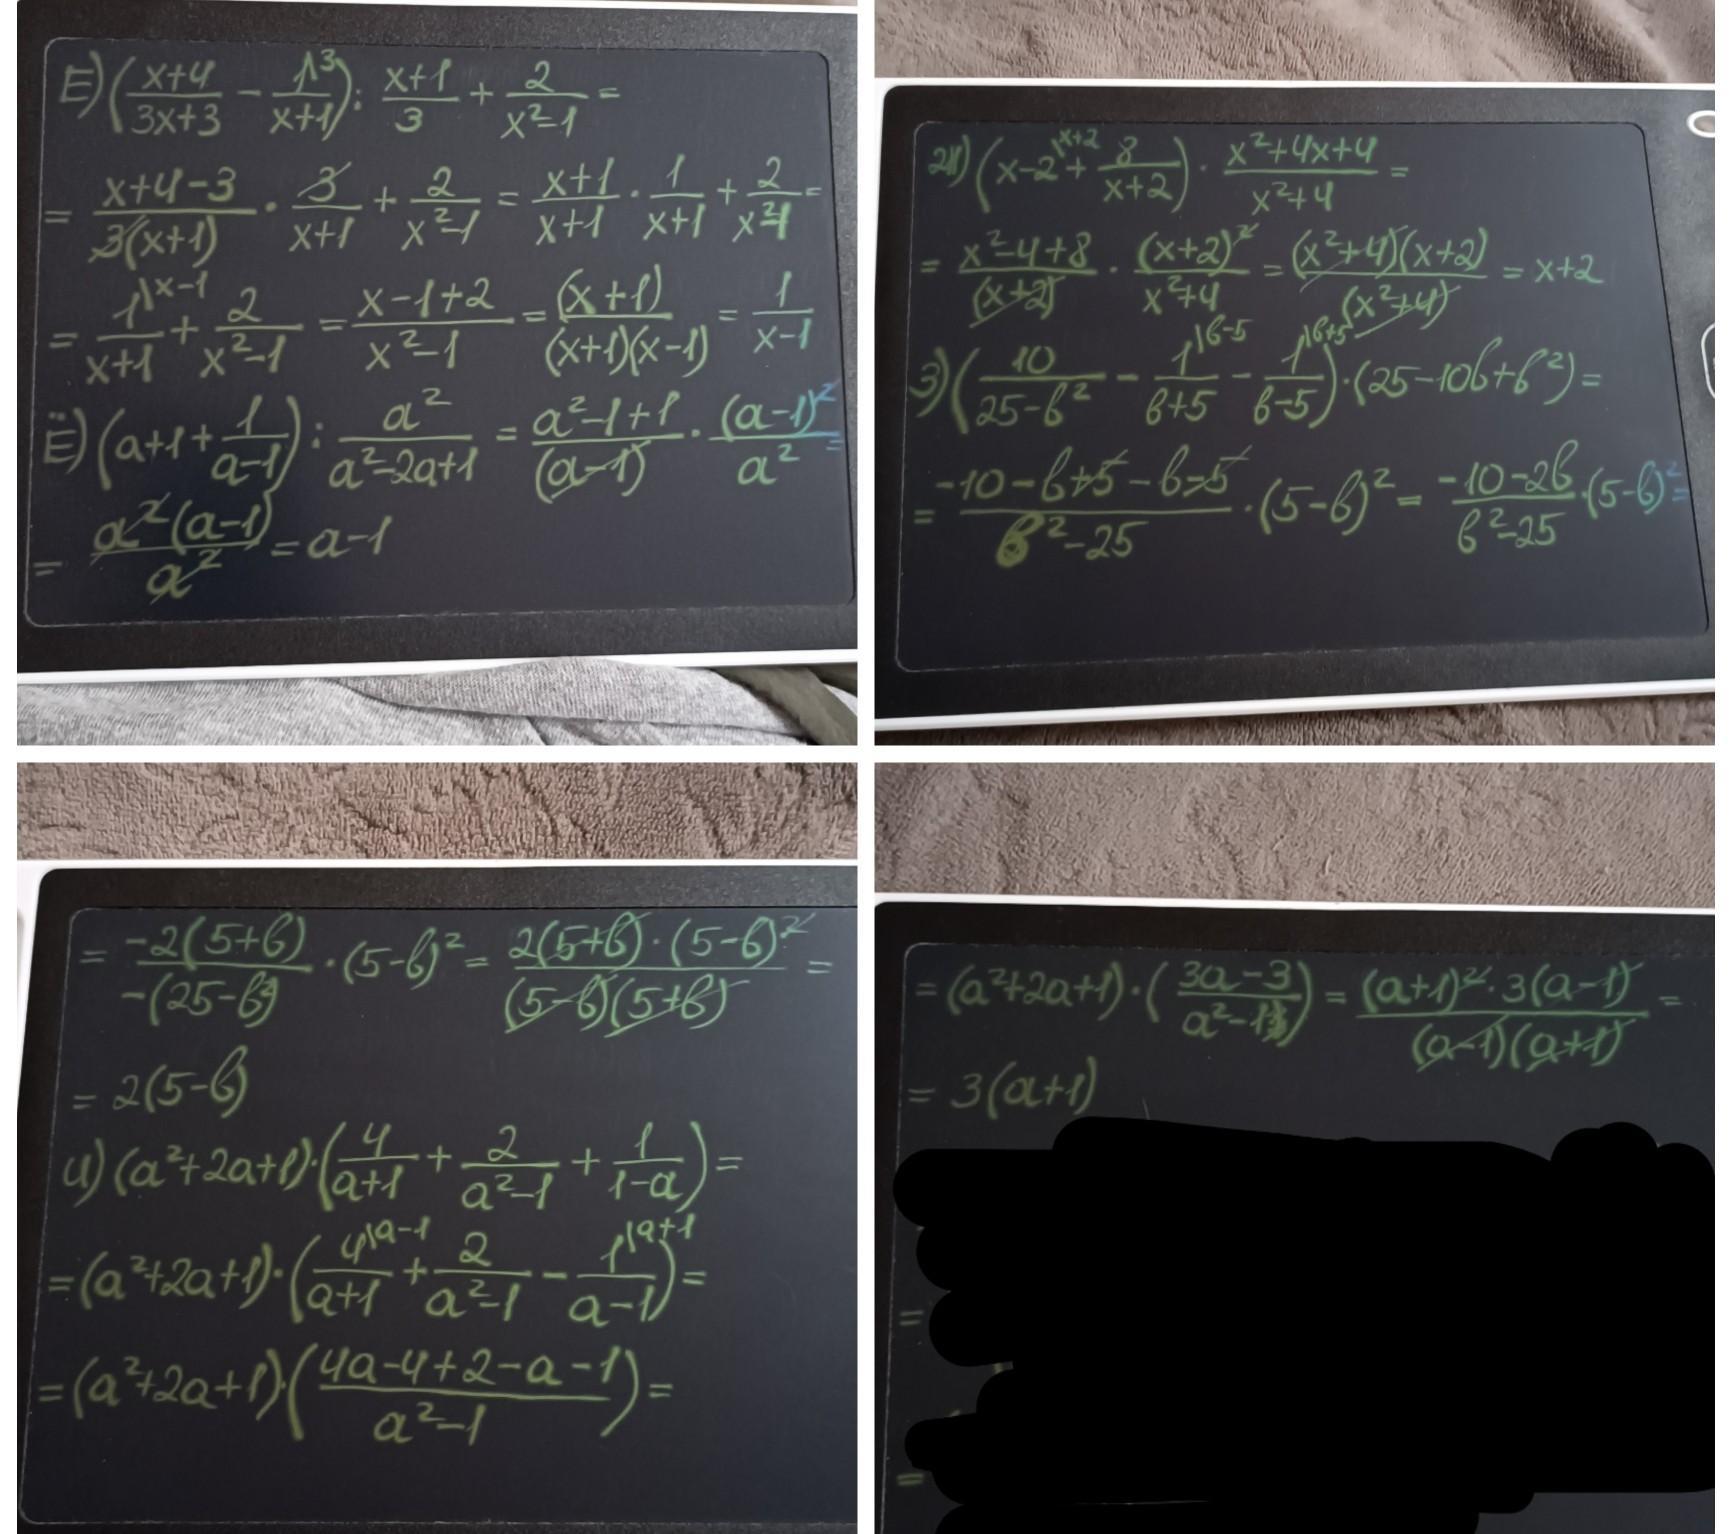 Е) ((x+4)/(3x+3) - 1^3/(x+1)) : (x+1)/3 + 2/(x²-1) =
= (x+4-3)/(3(x+1)) · 3/(x+1) + 2/(x²-1) = (x+1)/(x+1) · 1/(x+1) + 2/(x²-1) =
= 1^|x-1/(x+1) + 2/(x²-1) = (x-1+2)/(x²-1) = (x+1)/((x+1)(x-1)) = 1/(x-1)
Ё) (a+1+1/(a-1)) : a²/(a²-2a+1) = (a²-1+1)/(a-1) · (a-1)²/a² =
= a²(a-1)/a² = a-1
(x-2^|x+2 + 8/(x+2)) · (x²+4x+4)/(x²+4) =
= (x²-4+8)/(x+2) · (x+2)²/(x²+4) = (x²+4)(x+2)/(x²+4) = x+2
З) (10/(25-b²) - 1^|b-5/(b+5) - 1^|b+5/(b-5)) · (25-10b+b²) =
= (-10-b+5-b-5)/(b²-25) · (5-b)² = (-10-2b)/(b²-25) · (5-b)² =
= -2(5+b)/-(25-b²) · (5-b)² = 2(5+b)·(5-b)²/((5-b)(5+b)) =
= 2(5-b)
и) (a²+2a+1)·(4/(a+1) + 2/(a²-1) + 1/(1-a)) =
= (a²+2a+1)·(4^|a-1/(a+1) + 2/(a²-1) - 1^|a+1/(a-1)) =
= (a²+2a+1)·((4a-4+2-a-1)/(a²-1)) =
= (a²+2a+1)·((3a-3)/(a²-1)) = (a+1)²·3(a-1)/((a-1)(a+1)) =
= 3(a+1)
=
=